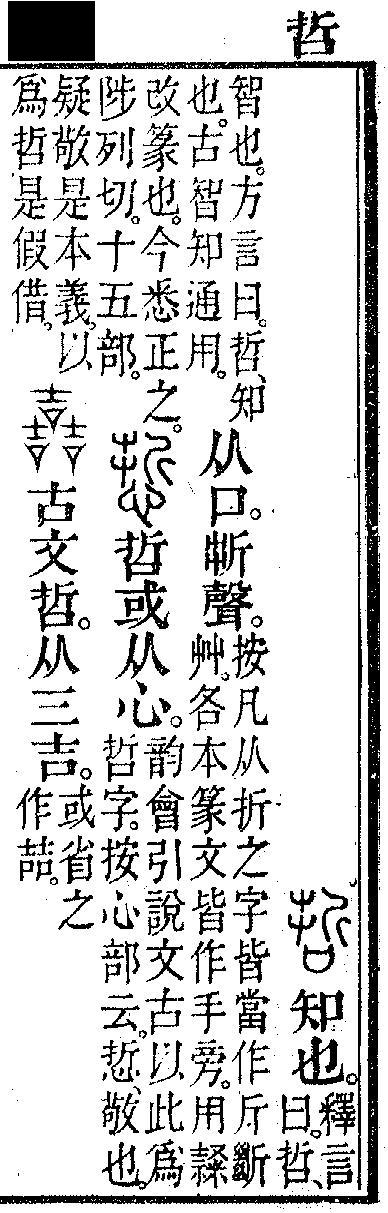 哲
哲知也。釋言曰。哲、
智也。方言曰。哲、知也。古智知通用。从口。㪿聲。按凡从折之字皆當作斤斷艸。各本篆文皆作手旁。用隸
改篆也。今悉正之。陟列切。十五部。悊哲或从心。韵會引說文古以此爲哲字。按心部云。悊、敬也。
疑敬是本義。以爲哲是假借。嚞古文哲。从三吉。或省之作喆。